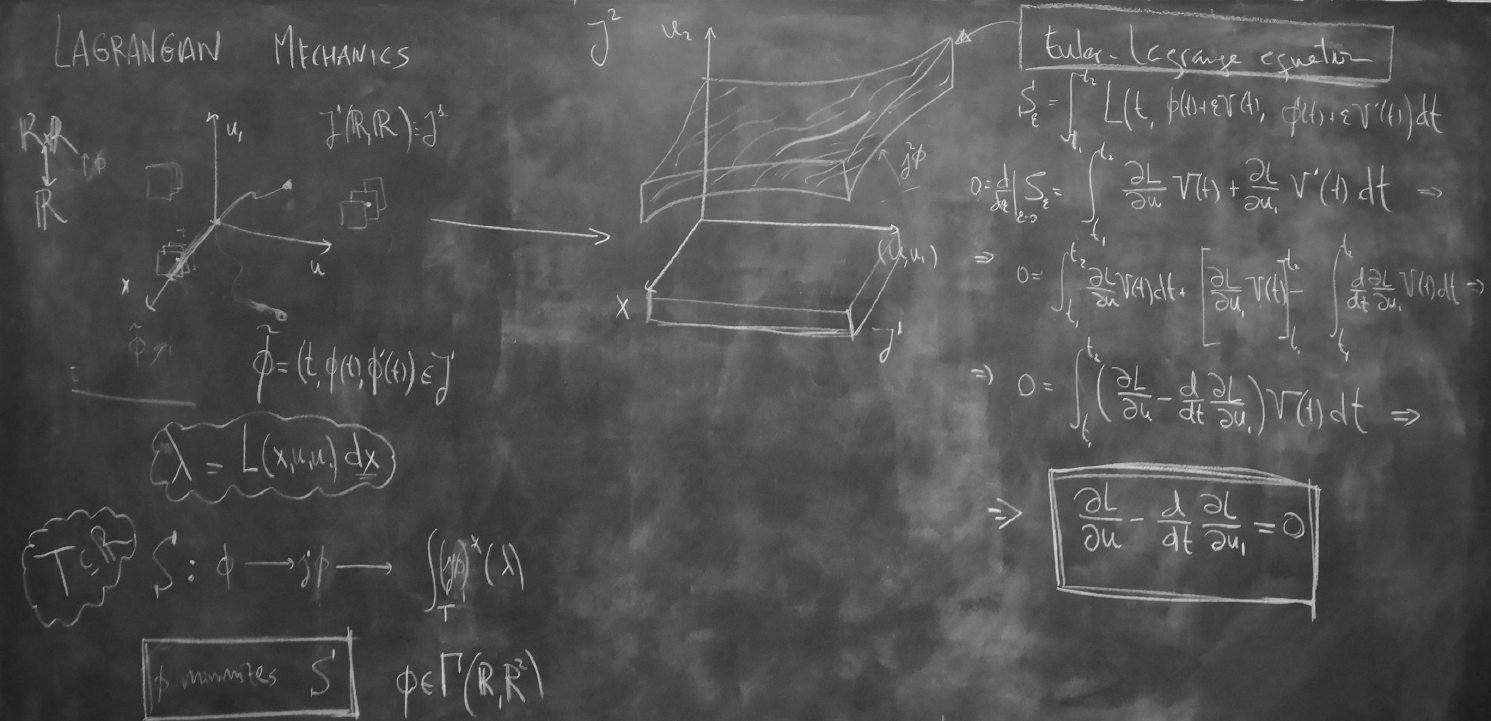 LAGRANGIAN MECHANICS
R×R
↓ ↑φ
R
u₁
J¹(R,R) := J¹
u
x
φ̃ = (t, φ(t), φ'(t)) ∈ J¹
λ = L(x,u,u₁) dx
T ⊆ R
S : φ → jφ → ∫_T (jφ)*(λ)
φ minimizes S
φ ∈ Γ(R,R²)
J²
u₂
j²φ
(u,u₁)
x
J¹
Euler-Lagrange equation
S_ε = ∫_{t₁}^{t₂} L(t, φ(t)+εV(t), φ'(t)+εV'(t)) dt
0 = d/dε|_{ε=0} S_ε = ∫_{t₁}^{t₂} ∂L/∂u V(t) + ∂L/∂u₁ V'(t) dt ⇒
⇒ 0 = ∫_{t₁}^{t₂} ∂L/∂u V(t) dt + [∂L/∂u₁ V(t)]_{t₁}^{t₂} - ∫_{t₁}^{t₂} d/dt ∂L/∂u₁ V(t) dt ⇒
⇒ 0 = ∫_{t₁}^{t₂} (∂L/∂u - d/dt ∂L/∂u₁) V(t) dt ⇒
⇒ ∂L/∂u - d/dt ∂L/∂u₁ = 0